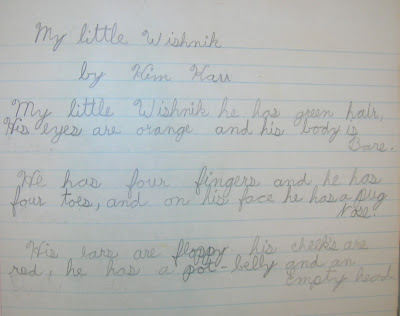 My little Wishnik
by Kim Karr
My little Wishnik he has green hair,
His eyes are orange and his body is
Bare.
He has four fingers and he has
four toes, and on his face he has a pug
Nose.
His ears are floppy his cheeks are
red, he has a pot-belly and an
empty head